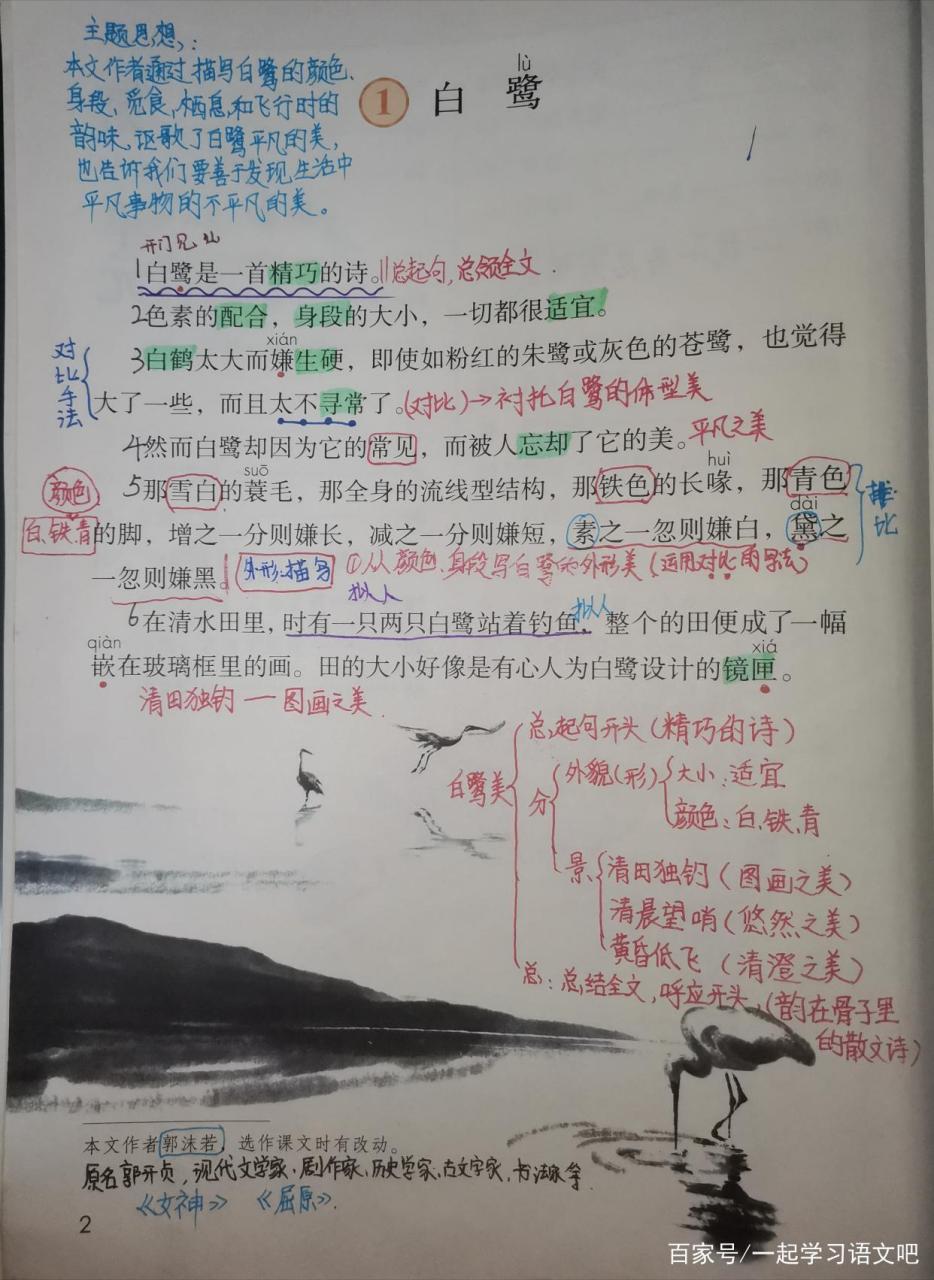 主题思想:
本文作者通过描写白鹭的颜色、
身段、觅食、栖息,和飞行时的
韵味,讴歌了白鹭平凡的美,
也告诉我们要善于发现生活中
平凡事物的不平凡的美。
lù
1 白鹭
开门见山
1白鹭是一首精巧的诗。总起句,总领全文.
2色素的配合,身段的大小,一切都很适宜。
xián
3白鹤太大而嫌生硬,即使如粉红的朱鹭或灰色的苍鹭,也觉得
对比手法
大了一些,而且太不寻常了。(对比)→衬托白鹭的体型美
4然而白鹭却因为它的常见,而被人忘却了它的美。平凡之美
suō huì
颜色
5那雪白的蓑毛,那全身的流线型结构,那铁色的长喙,那青色
dài
排比
白.铁.青的脚,增之一分则嫌长,减之一分则嫌短,素之一忽则嫌白,黛之
一忽则嫌黑。外形描写 ①从颜色、身段写白鹭的外形美(运用对比的写法)
拟人 拟人
6在清水田里,时有一只两只白鹭站着钓鱼,整个的田便成了一幅
qiàn xiá
嵌在玻璃框里的画。田的大小好像是有心人为白鹭设计的镜匣。
清田独钓一图画之美
总起句开头(精巧的诗)
白鹭美
分
外貌(形)
大小:适宜
颜色:白.铁.青
景
清田独钓(图画之美)
清晨望哨(悠然之美)
黄昏低飞(清澄之美)
总:总结全文,呼应开头,(韵在骨子里
的散文诗)
本文作者郭沫若,选作课文时有改动。
原名郭开贞,现代文学家、剧作家、历史学家、古文字家,书法家等.
《女神》《屈原》.
2
百家号/一起学习语文吧